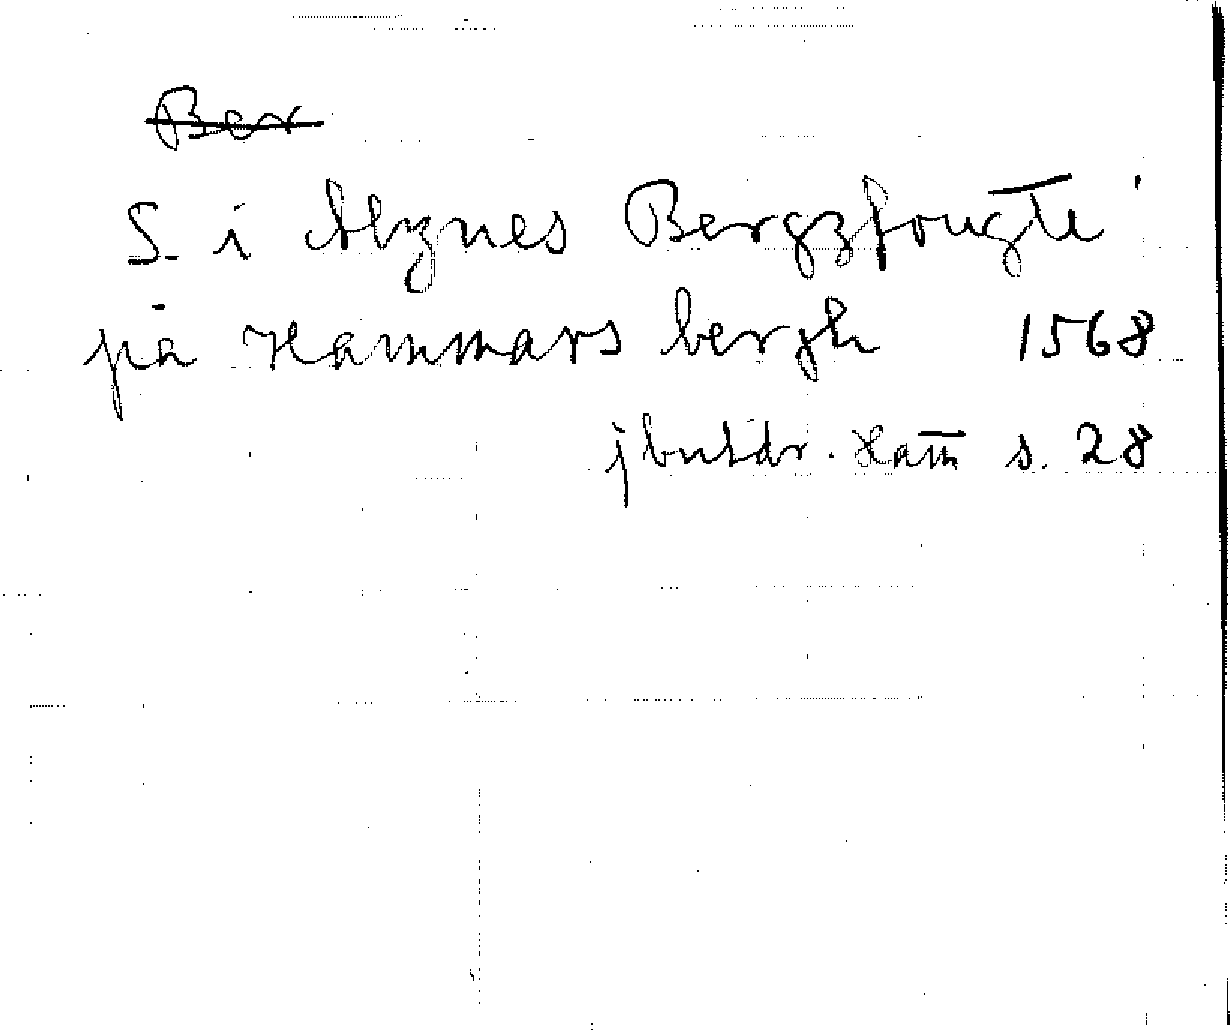 Ber
S. i Alznes Bergzfougte
på Hammars bergh 1568
jbutdr. Ham s. 28